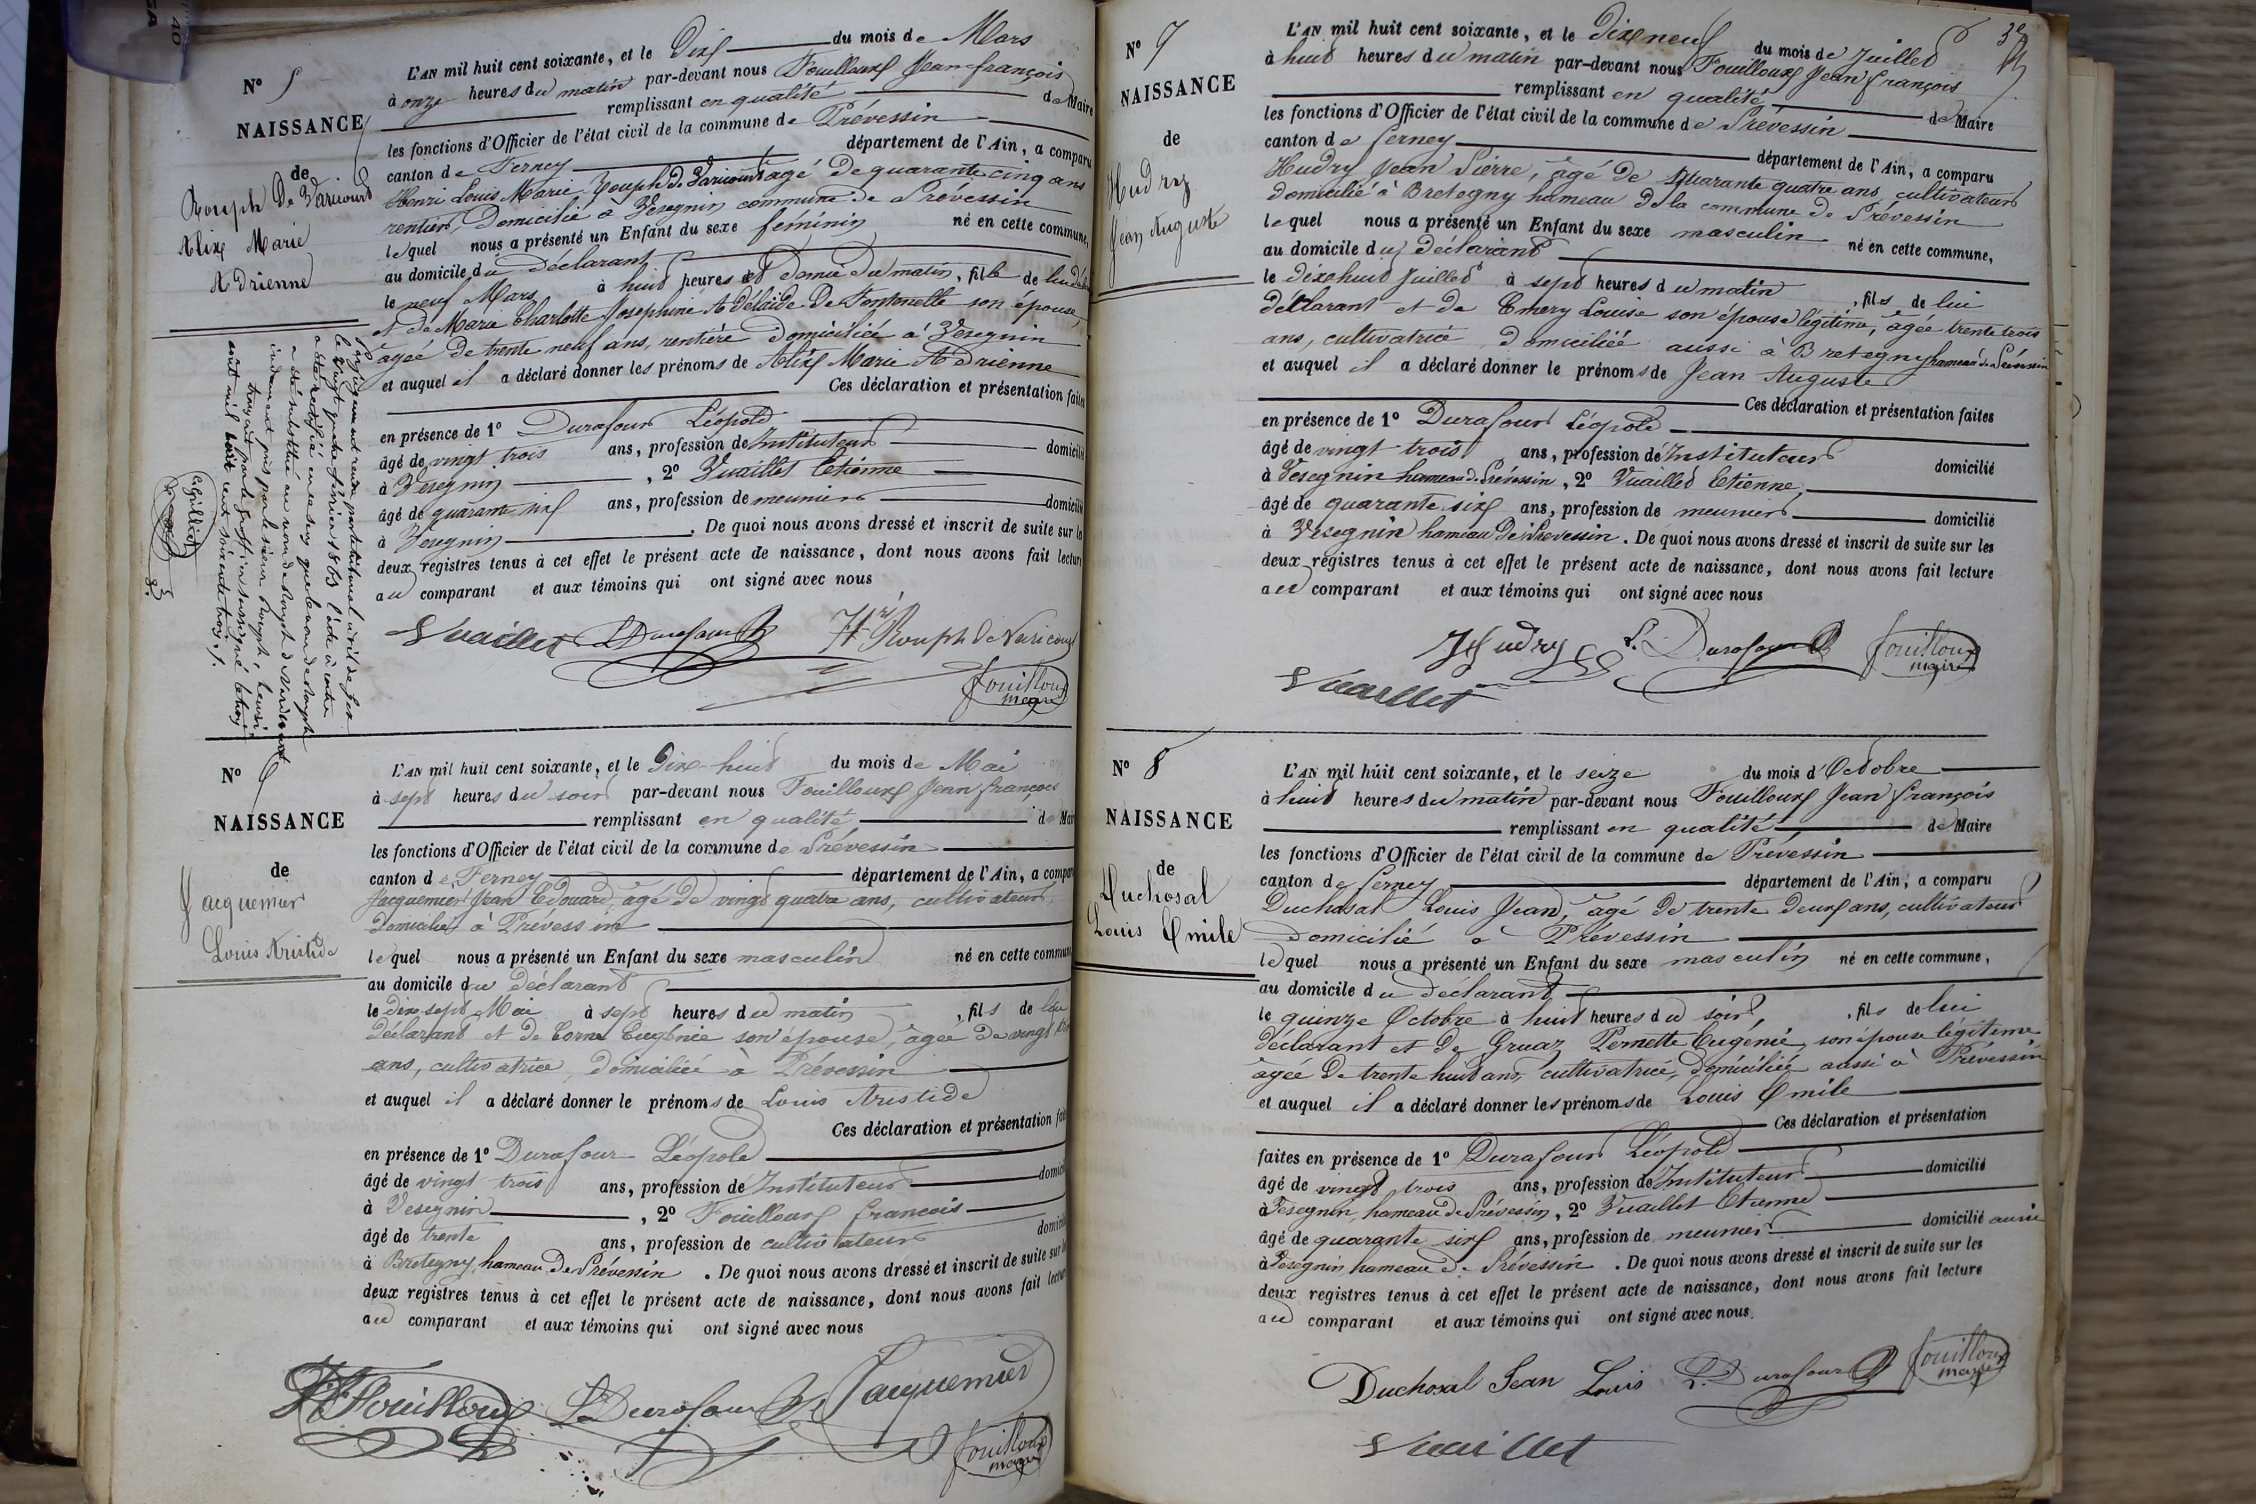 N° 5
NAISSANCE
de
Rouph De Varicourt
Alix Marie
Adrienne
L'AN mil huit cent soixante, et le Dix du mois de Mars
à onze heures du matin par-devant nous Fouilloux Jean françois
remplissant en qualité de Maire
les fonctions d'Officier de l'état civil de la commune de Prévessin
canton de Ferney département de l'Ain, a comparu
Henri Louis Marie Rouph de Varicourt agé de quarante cinq ans
rentier, Domicilié à Vesegnin commune de Prévessin
lequel nous a présenté un Enfant du sexe féminin né en cette commune,
au domicile du déclarant
le neuf Mars à huit heures et Demie du matin, fille de lui dé
et de Marie Charlotte Josephine Adélaïde De Fontenelle son épouse,
âgée de trente neuf ans, rentière domiciliée à Vesegnin
et auquel il a déclaré donner les prénoms de Alix Marie Adrienne
Ces déclaration et présentation faites
en présence de 1° Durafour Léopold
âgé de vingt trois ans, profession de Instituteur domicilié
à Vesegnin, 2° Vuaillet Etienne
âgé de quarante six ans, profession de meunier domicilié
à Vesegnin. De quoi nous avons dressé et inscrit de suite sur le
deux registres tenus à cet effet le présent acte de naissance, dont nous avons fait lecture
au comparant et aux témoins qui ont signé avec nous
Vuaillet L. Durafour Hri Rouph de Varicourt
fouilloux
maire
Par jugement rendu par le tribunal civil de Gex
le vingt quatre février 1863 l'acte ci contre
a été rectifié en ce sens que le nom de Rouph
a été substitué au nom de Rouph de Varicourt
août mil huit cent soixante trois ./.
N° 6
NAISSANCE
de
Jacquemier
Louis Aristide
L'AN mil huit cent soixante, et le Dix-huit du mois de Mai
à sept heures du soir par-devant nous Fouilloux Jean françois
remplissant en qualité de Mai
les fonctions d'Officier de l'état civil de la commune de Prévessin
canton de Ferney département de l'Ain, a compar
Jacquemier Jean Edouard, agé de vingt quatre ans, cultivateur,
domicilié à Prévessin
lequel nous a présenté un Enfant du sexe masculin né en cette commun
au domicile du déclarant
le dix sept Mai à sept heures du matin, fils de lui
déclarant et de Corne Eugénie son épouse, âgée de vingt
ans, cultivatrice, domiciliée à Prévessin
et auquel il a déclaré donner le prénoms de Louis Aristide
Ces déclaration et présentation fai
en présence de 1° Durafour Léopold
âgé de vingt trois ans, profession de Instituteur domici
à Vesegnin, 2° Fouilloux francois
âgé de trente ans, profession de cultivateur domici
à Bretegny, hameau de Prévessin. De quoi nous avons dressé et inscrit de suite sur le
deux registres tenus à cet effet le présent acte de naissance, dont nous avons fait lectu
au comparant et aux témoins qui ont signé avec nous
Fouilloux L. Durafour Jacquemier
fouilloux
maire
32
N° 7
NAISSANCE
de
Hudry
Jean Auguste
L'AN mil huit cent soixante, et le Dix neuf du mois de Juillet
à huit heures du matin par-devant nous Fouilloux Jean françois
remplissant en qualité de Maire
les fonctions d'Officier de l'état civil de la commune de Prévessin
canton de ferney département de l'Ain, a comparu
Hudry Jean Pierre, âgé de quarante quatre ans, cultivateur
domicilié à Bretegny hameau de la commune de Prévessin
lequel nous a présenté un Enfant du sexe masculin né en cette commune,
au domicile du déclarant
le dix huit Juillet à sept heures du matin, fils de lui
déclarant et de Emery Louise son épouse légitime, âgée trente trois
ans, cultivatrice domiciliée aussi à Bretegny hameau de Prévessin
et auquel il a déclaré donner le prénoms de Jean Auguste
Ces déclaration et présentation faites
en présence de 1° Durafour Léopold
âgé de vingt-trois ans, profession de Instituteur domicilié
à Vesegnin hameau de Prévessin, 2° Vuaillet Etienne,
âgé de quarante six ans, profession de meunier domicilié
à Vesegnin hameau de Prevessin. De quoi nous avons dressé et inscrit de suite sur les
deux registres tenus à cet effet le présent acte de naissance, dont nous avons fait lecture
au comparant et aux témoins qui ont signé avec nous
JHudry L. Durafour fouilloux
maire
Vuaillet
N° 8
NAISSANCE
de
Duchosal
Louis Emile
L'AN mil huit cent soixante, et le seize du mois d'Octobre
à huit heures du matin par-devant nous Fouilloux Jean françois
remplissant en qualité de Maire
les fonctions d'Officier de l'état civil de la commune de Prévessin
canton de ferney département de l'Ain, a comparu
Duchosal Louis Jean, âgé de trente deux ans, cultivateur
domicilié à Prévessin
lequel nous a présenté un Enfant du sexe masculin né en cette commune,
au domicile du déclarant
le quinze Octobre à huit heures du soir, fils de lui
déclarant et de Gruaz Pernette Eugénie, son épouse légitime
âgée de trente huit ans, cultivatrice, domiciliée aussi à Prévessin
et auquel il a déclaré donner les prénoms de Louis Emile
Ces déclaration et présentation
faites en présence de 1° Durafour Léopold
âgé de vingt trois ans, profession de Instituteur domicilié
à Vesegnin, hameau de Prévessin, 2° Vuaillet Etienne
âgé de quarante six ans, profession de meunier domicilié aussi
à Vesegnin hameau de Prévessin. De quoi nous avons dressé et inscrit de suite sur les
deux registres tenus à cet effet le présent acte de naissance, dont nous avons fait lecture
au comparant et aux témoins qui ont signé avec nous.
Duchosal Jean Louis L. Durafour fouilloux
maire
Vuaillet